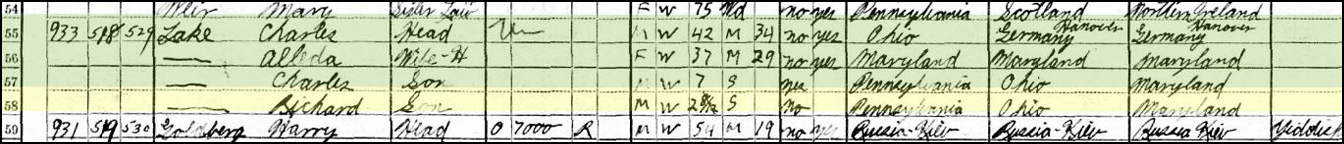 54 Weir Mary Sister Law F W 75 Wd no yes Pennsylvania Scotland Northern Ireland
55 933 518 529 Lake Charles Head M W 42 M 34 no yes Ohio Germany Hanover Germany Hanover
56 — Alleda Wife-H F W 37 M 29 no yes Maryland Maryland Maryland
57 — Charles Son M W 7 S yes Pennsylvania Ohio Maryland
58 — Richard Son M W S no Pennsylvania Ohio Maryland
59 931 519 530 Goldberg Harry Head O 7000 R M W 54 M 19 no yes Russia-Kiev Russia-Kiev Russia Kiev Yiddish